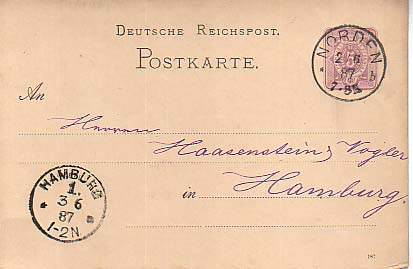 DEUTSCHE REICHSPOST.
POSTKARTE.
NORDEN
2 6
87
7-8
b
An
Herren
Haasenstein & Vogler
in Hamburg.
HAMBURG
1.
3 6
87
1-2N
187